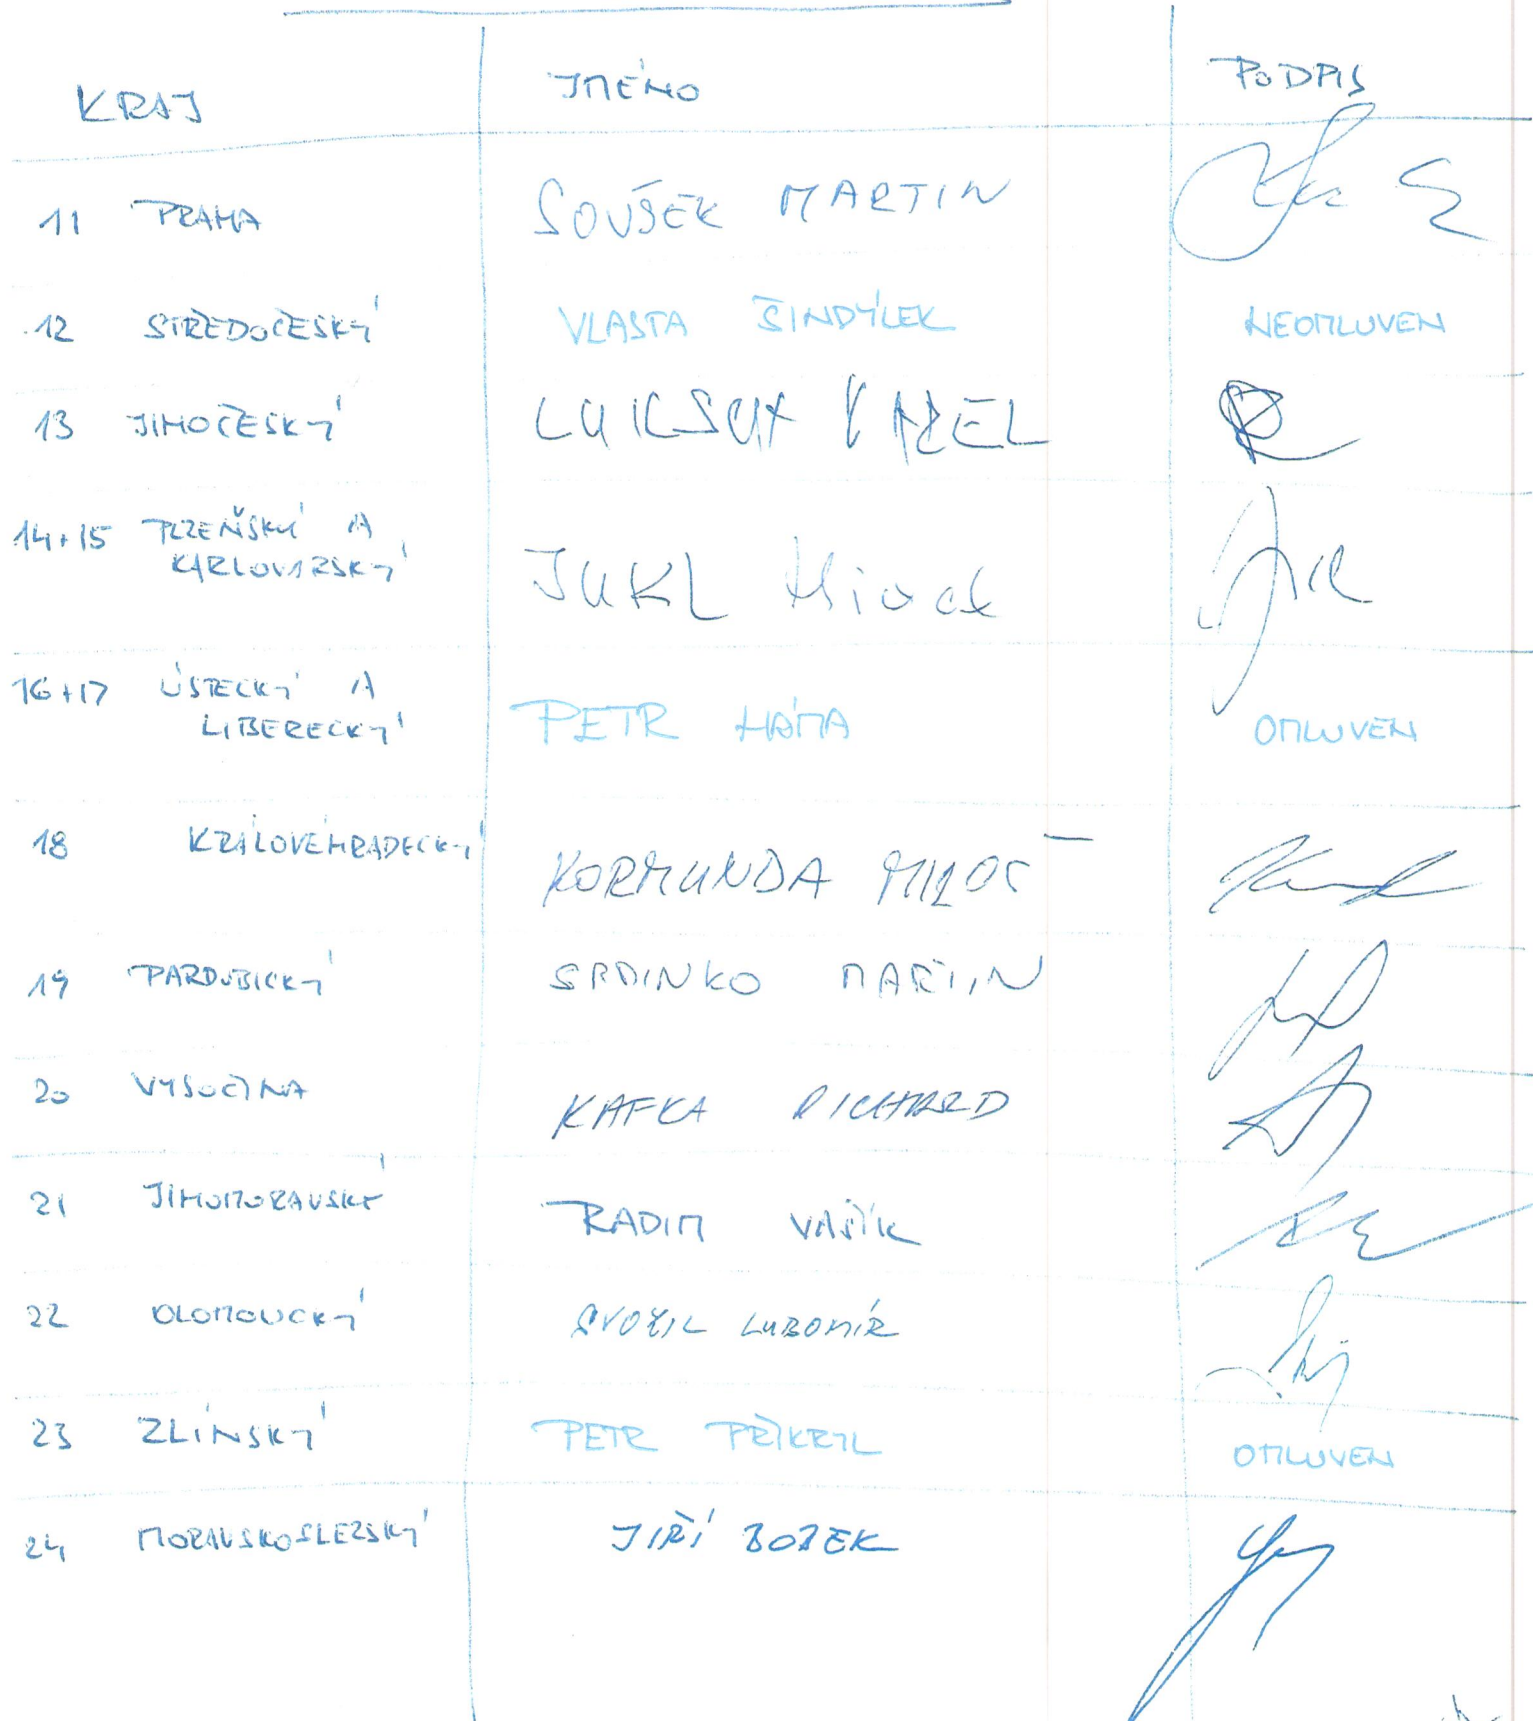 KRAJ JMÉNO PODPIS
11 PRAHA SOUŠEK MARTIN
12 STŘEDOČESKÝ VLASTA ŠINDÝLEK NEOMLUVEN
13 JIHOČESKÝ KAREL
14+15 PLZEŇSKÝ A
KARLOVARSKÝ JUKL
16+17 ÚSTECKÝ A
LIBERECKÝ PETR HÁMA OMLUVEN
18 KRÁLOVÉHRADECKÝ KORMUNDA MILOŠ
19 PARDUBICKÝ SRDINKO MARTIN
20 VYSOČINA KAFKA RICHARD
21 JIHOMORAVSKÝ RADIM VAŠÍK
22 OLOMOUCKÝ SVOZIL LUBOMÍR
23 ZLÍNSKÝ PETR PŘIKRYL OMLUVEN
24 MORAVSKOSLEZSKÝ JIŘÍ BOBEK